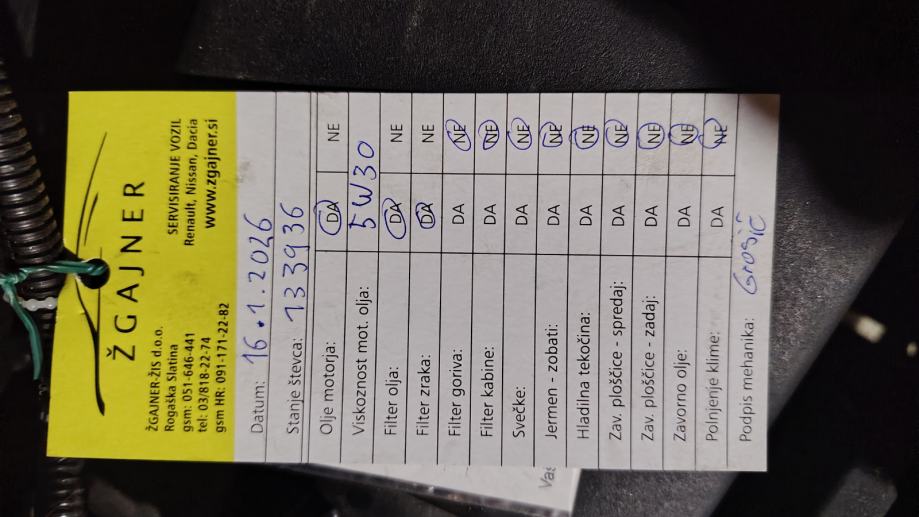 ŽGAJNER
ŽGAJNER-ŽIS d.o.o.
Rogaška Slatina
gsm: 051-646-441
tel: 03/818-22-74
gsm HR: 091-171-22-82
SERVISIRANJE VOZIL
Renault, Nissan, Dacia
www.zgajner.si
Datum: 16.1.2026
Stanje števca: 133936
Olje motorja: DA NE
Viskoznost mot. olja: 5W30
Filter olja: DA NE
Filter zraka: DA NE
Filter goriva: DA NE
Filter kabine: DA NE
Svečke: DA NE
Jermen - zobati: DA NE
Hladilna tekočina: DA NE
Zav. ploščice - spredaj: DA NE
Zav. ploščice - zadaj: DA NE
Zavorno olje: DA NE
Polnjenje klime: DA NE
Podpis mehanika: